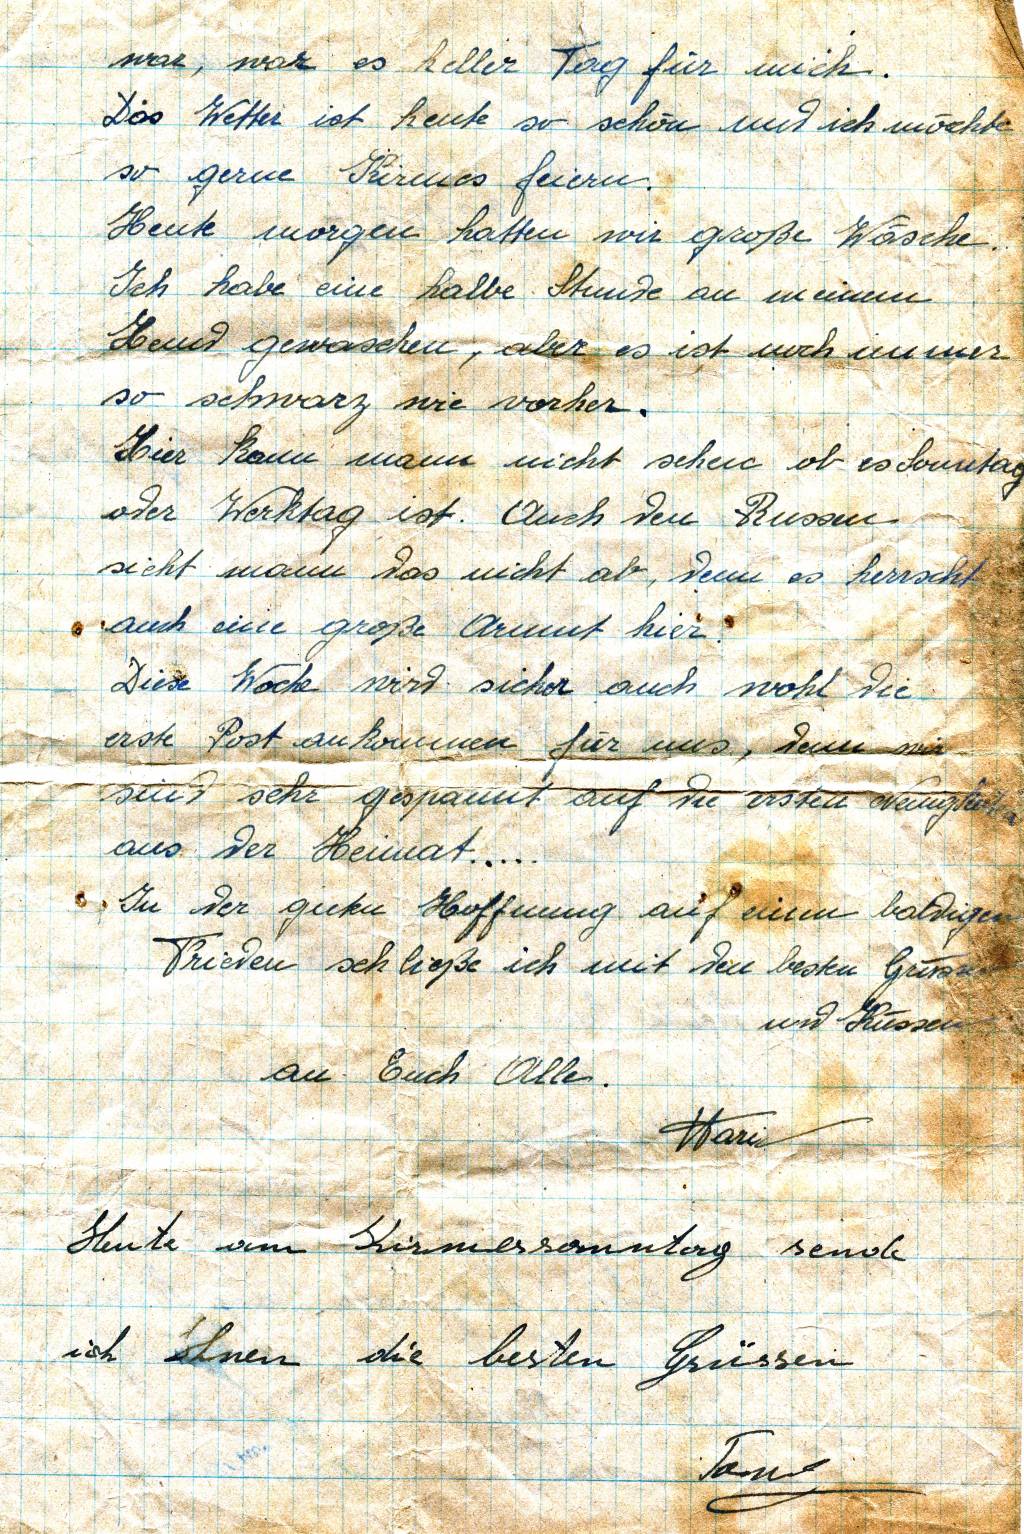 war, war es heller Tag für mich.
Das Wetter ist heute so schön und ich möchte
so gerne Kirmes feiern.
Heute morgen hatten wir große Wäsche.
Ich habe eine halbe Stunde an meinem
Hemd gewaschen, aber es ist noch immer
so schwarz wie vorher.
Hier kann mann nicht sehen ob es Sonntag
oder Werktag ist. Auch den Russen
sieht mann das nicht ab, denn es herrscht
auch eine große Armut hier.
Diese Woche wird sicher auch wohl die
erste Post ankommen für uns, denn wir
sind sehr gespannt auf die ersten
aus der Heimat.....
In der guten Hoffnung auf einen baldigen
Frieden schließe ich mit den besten Grüssen
und Küssen
an Euch Alle.
Heute am Kirmessonntag sende
ich Ihnen die besten Grüssen